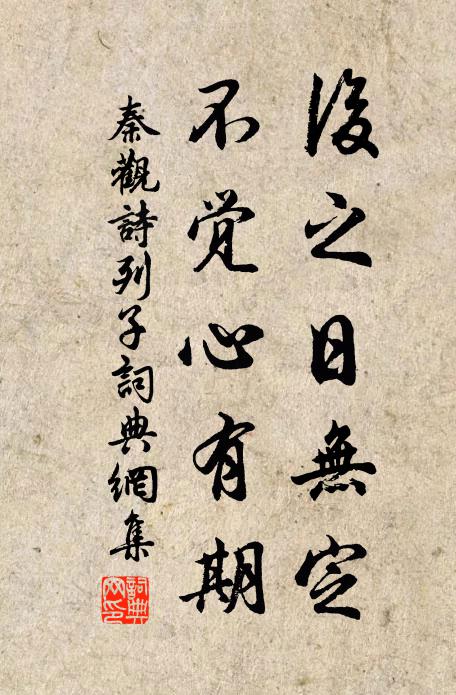 後之日無定
不觉心有期
秦觀詩列子詞典網集
詞典网印